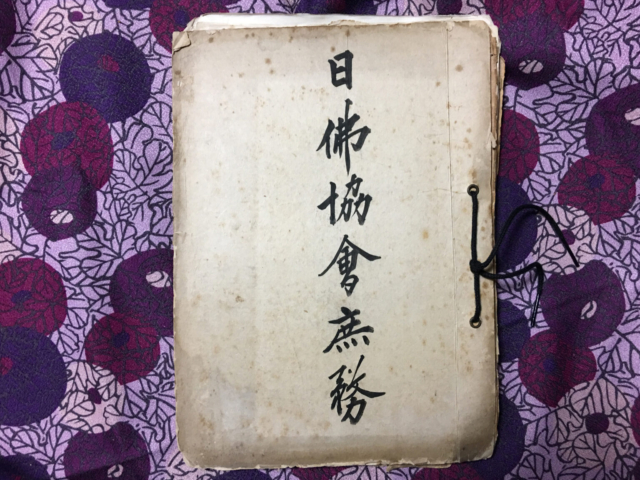 日佛協會庶務